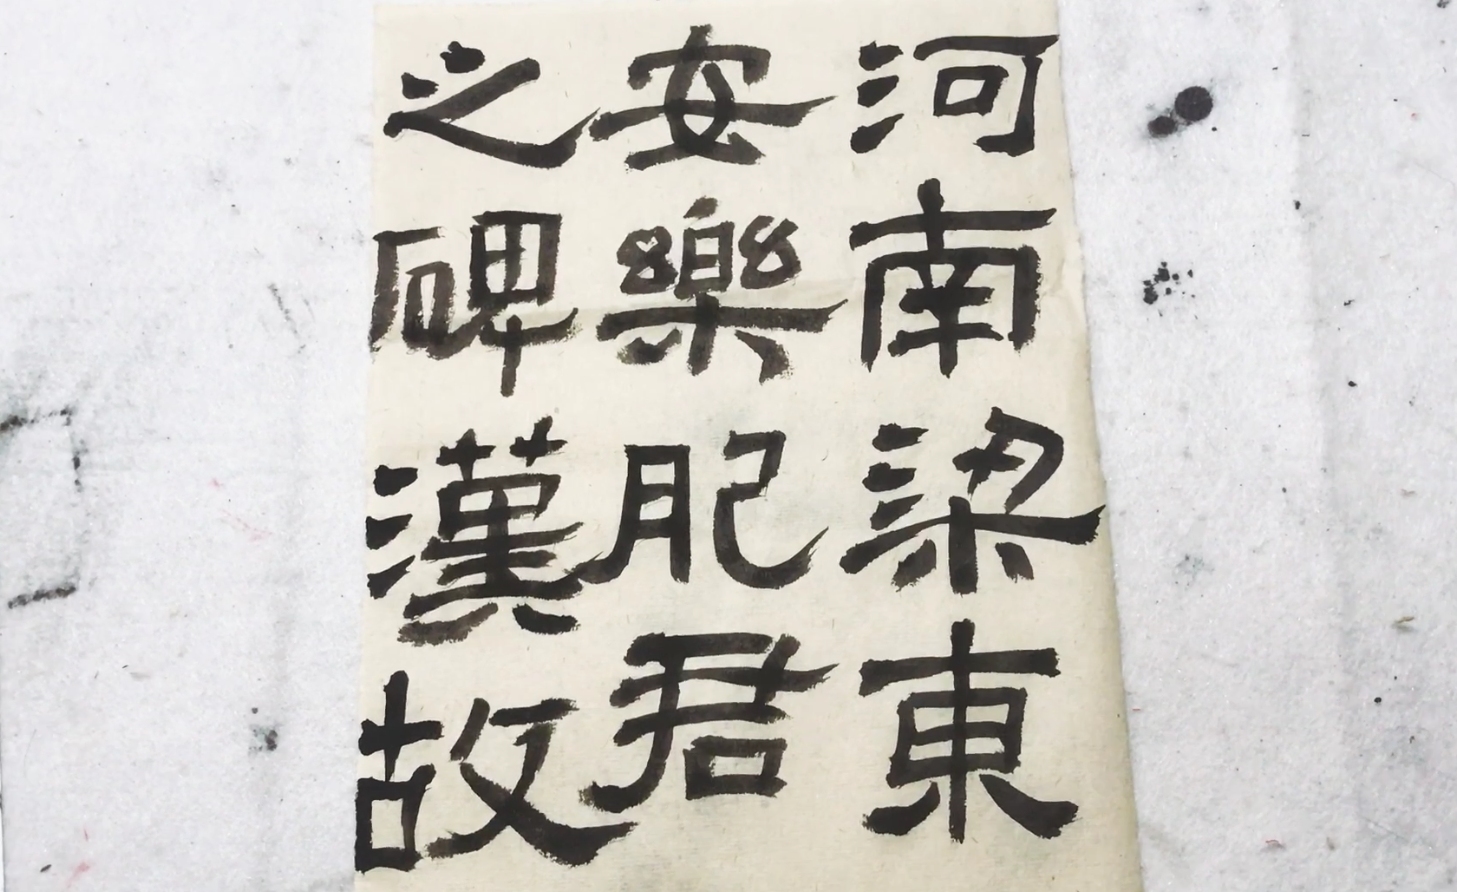 河南梁東
安樂肥君
之碑漢故